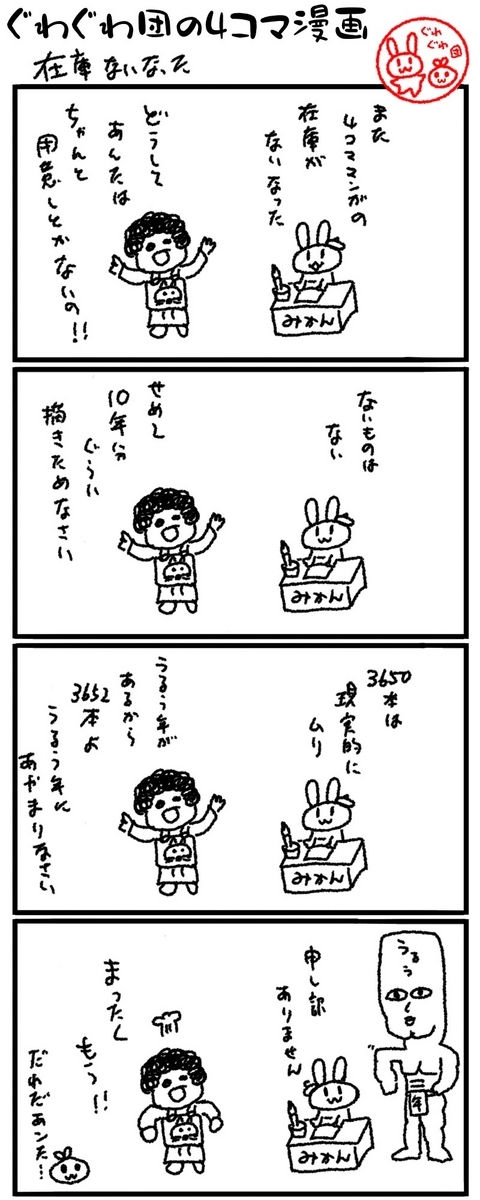 ぐわぐわ団の4コマ漫画
ぐわ
ぐわ
団
在庫ないなった
また
4コママンガの
在庫が
ないなった
みかん
どうして
あんたは
ちゃんと
用意しとかないの!!
ないものは
ない
みかん
せめて
10年分
ぐらい
描きためなさい
3650本は
現実的に
ムリ
みかん
うるう年が
あるから
3652本よ
うるう年に
あやまりなさい
うるう
年
申し訳
ありません
みかん
まったく
もう!!
だれだあンた…!